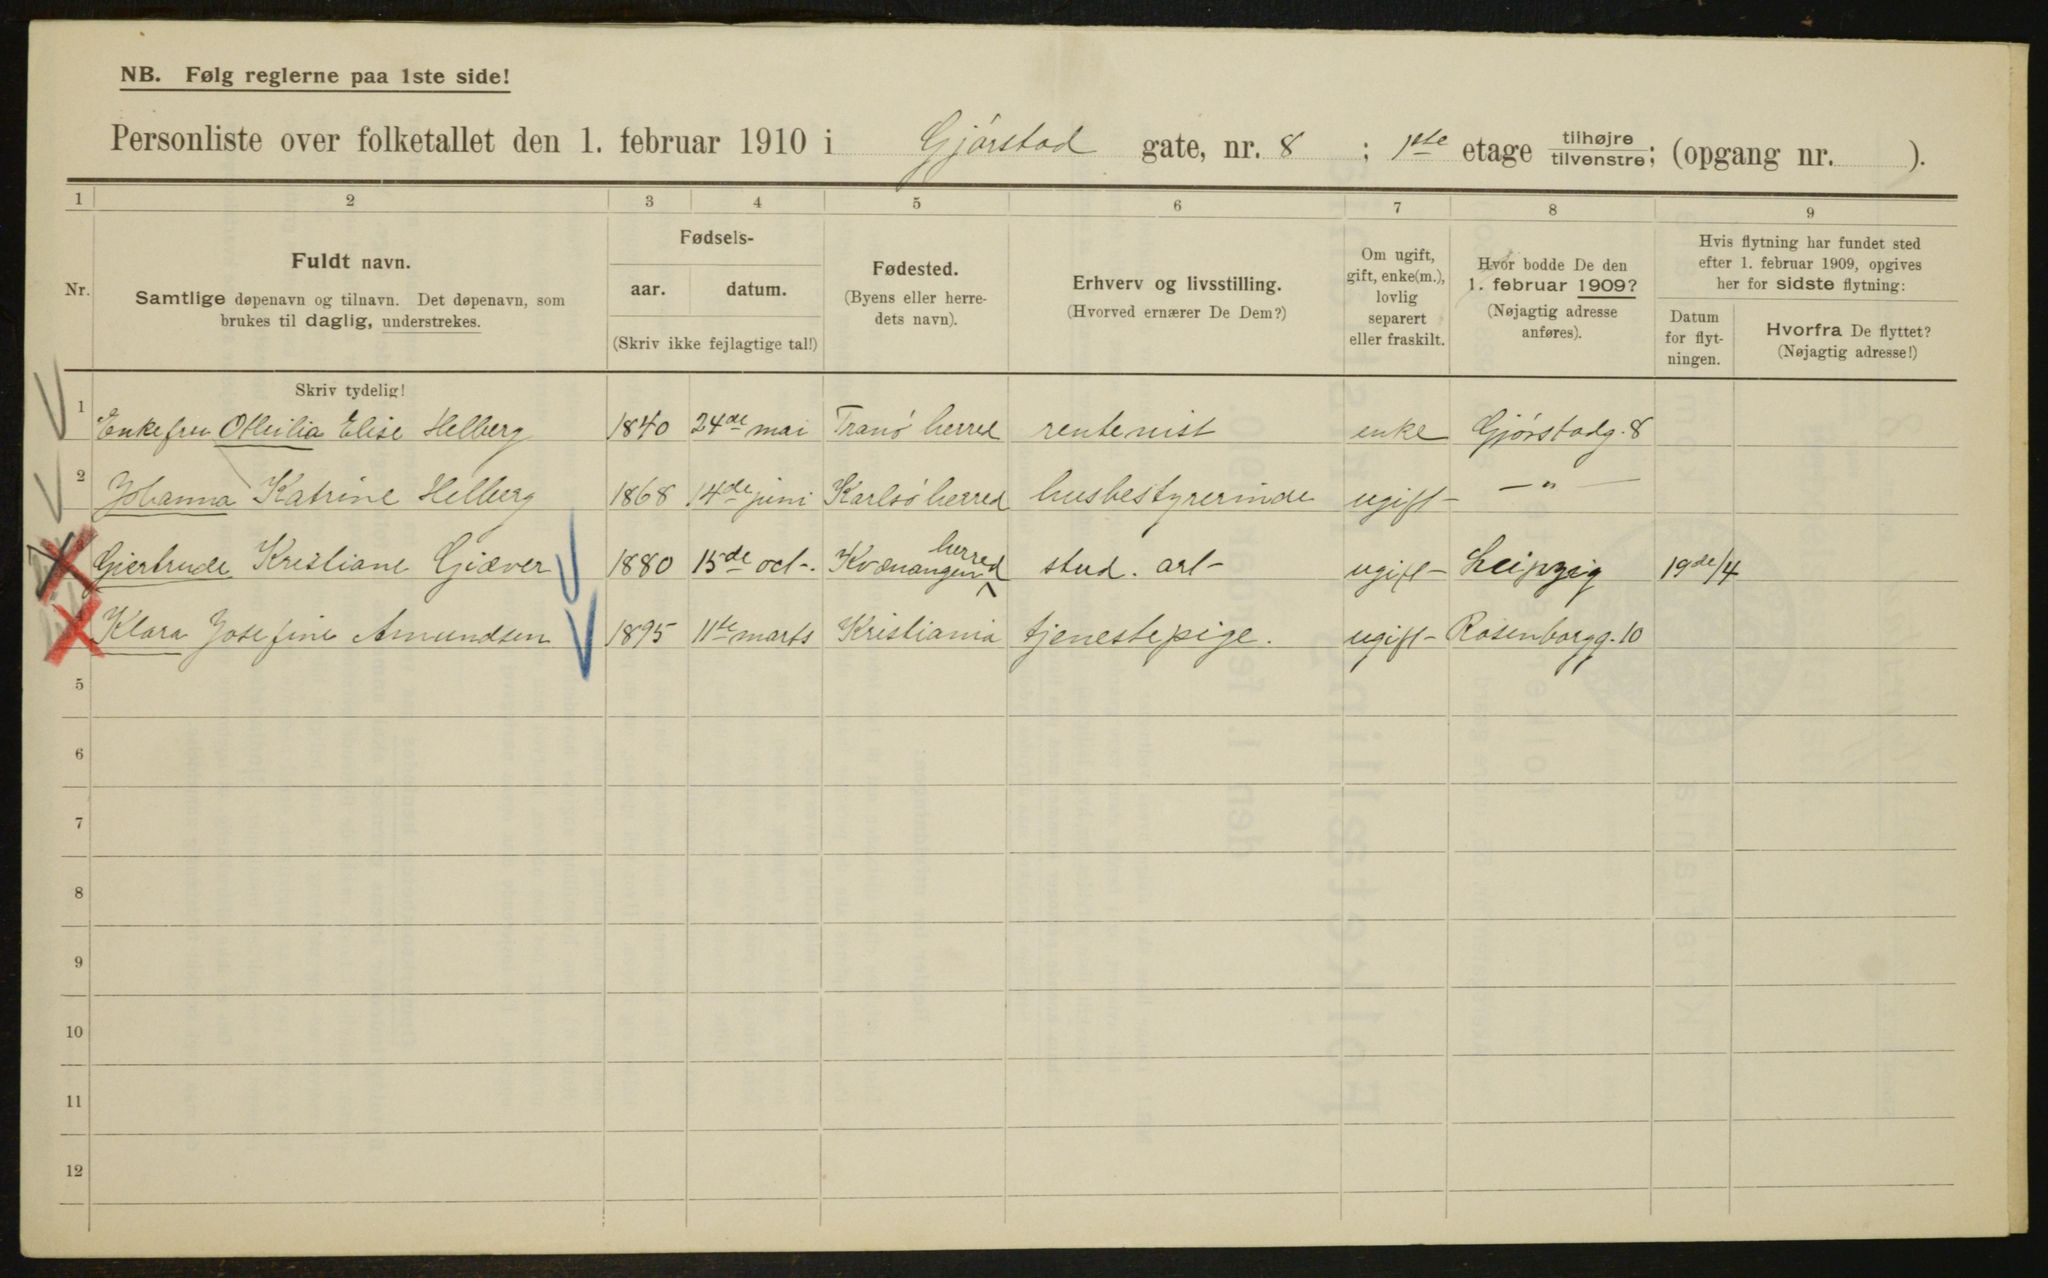 NB. Følg reglerne paa 1ste side!
Personliste over folketallet den 1. februar 1910 i Gjørstad gate, nr. 8 ; 1ste etage tilhøjre tilvenstre; (opgang nr. ).
1 2 3 4 5 6 7 8 9
Nr.
Fuldt navn.
Samtlige døpenavn og tilnavn. Det døpenavn, som
brukes til daglig, understrekes.
Skriv tydelig!
Fødsels-
aar. datum.
(Skriv ikke fejlagtige tal!)
Fødested.
(Byens eller herre-
dets navn).
Erhverv og livsstilling.
(Hvorved ernærer De Dem?)
Om ugift,
gift, enke(m.),
lovlig
separert
eller fraskilt.
Hvor bodde De den
1. februar 1909?
(Nøjagtig adresse
anføres).
Hvis flytning har fundet sted
efter 1. februar 1909, opgives
her for sidste flytning:
Datum
for flyt-
ningen.
Hvorfra De flyttet?
(Nøjagtig adresse!)
1 Enkefru Otteilia Elise Helberg 1840 24de mai Tranø herred rentenist enke Gjørstadg. 8
2 Johanna Katrine Helberg 1868 14de juni Karlsø herred husbestyrerinde ugift - — " —
3 Gjertrude Kristiane Giæver 1880 15de oct. Kvænangen herred stud. art - ugift - Leipzig 19de/4
Klara Josefine Amundsen 1895 11te marts Kristiania tjenestepige. ugift - Rosenborgg. 10
5
6
7
8
9
10
11
12